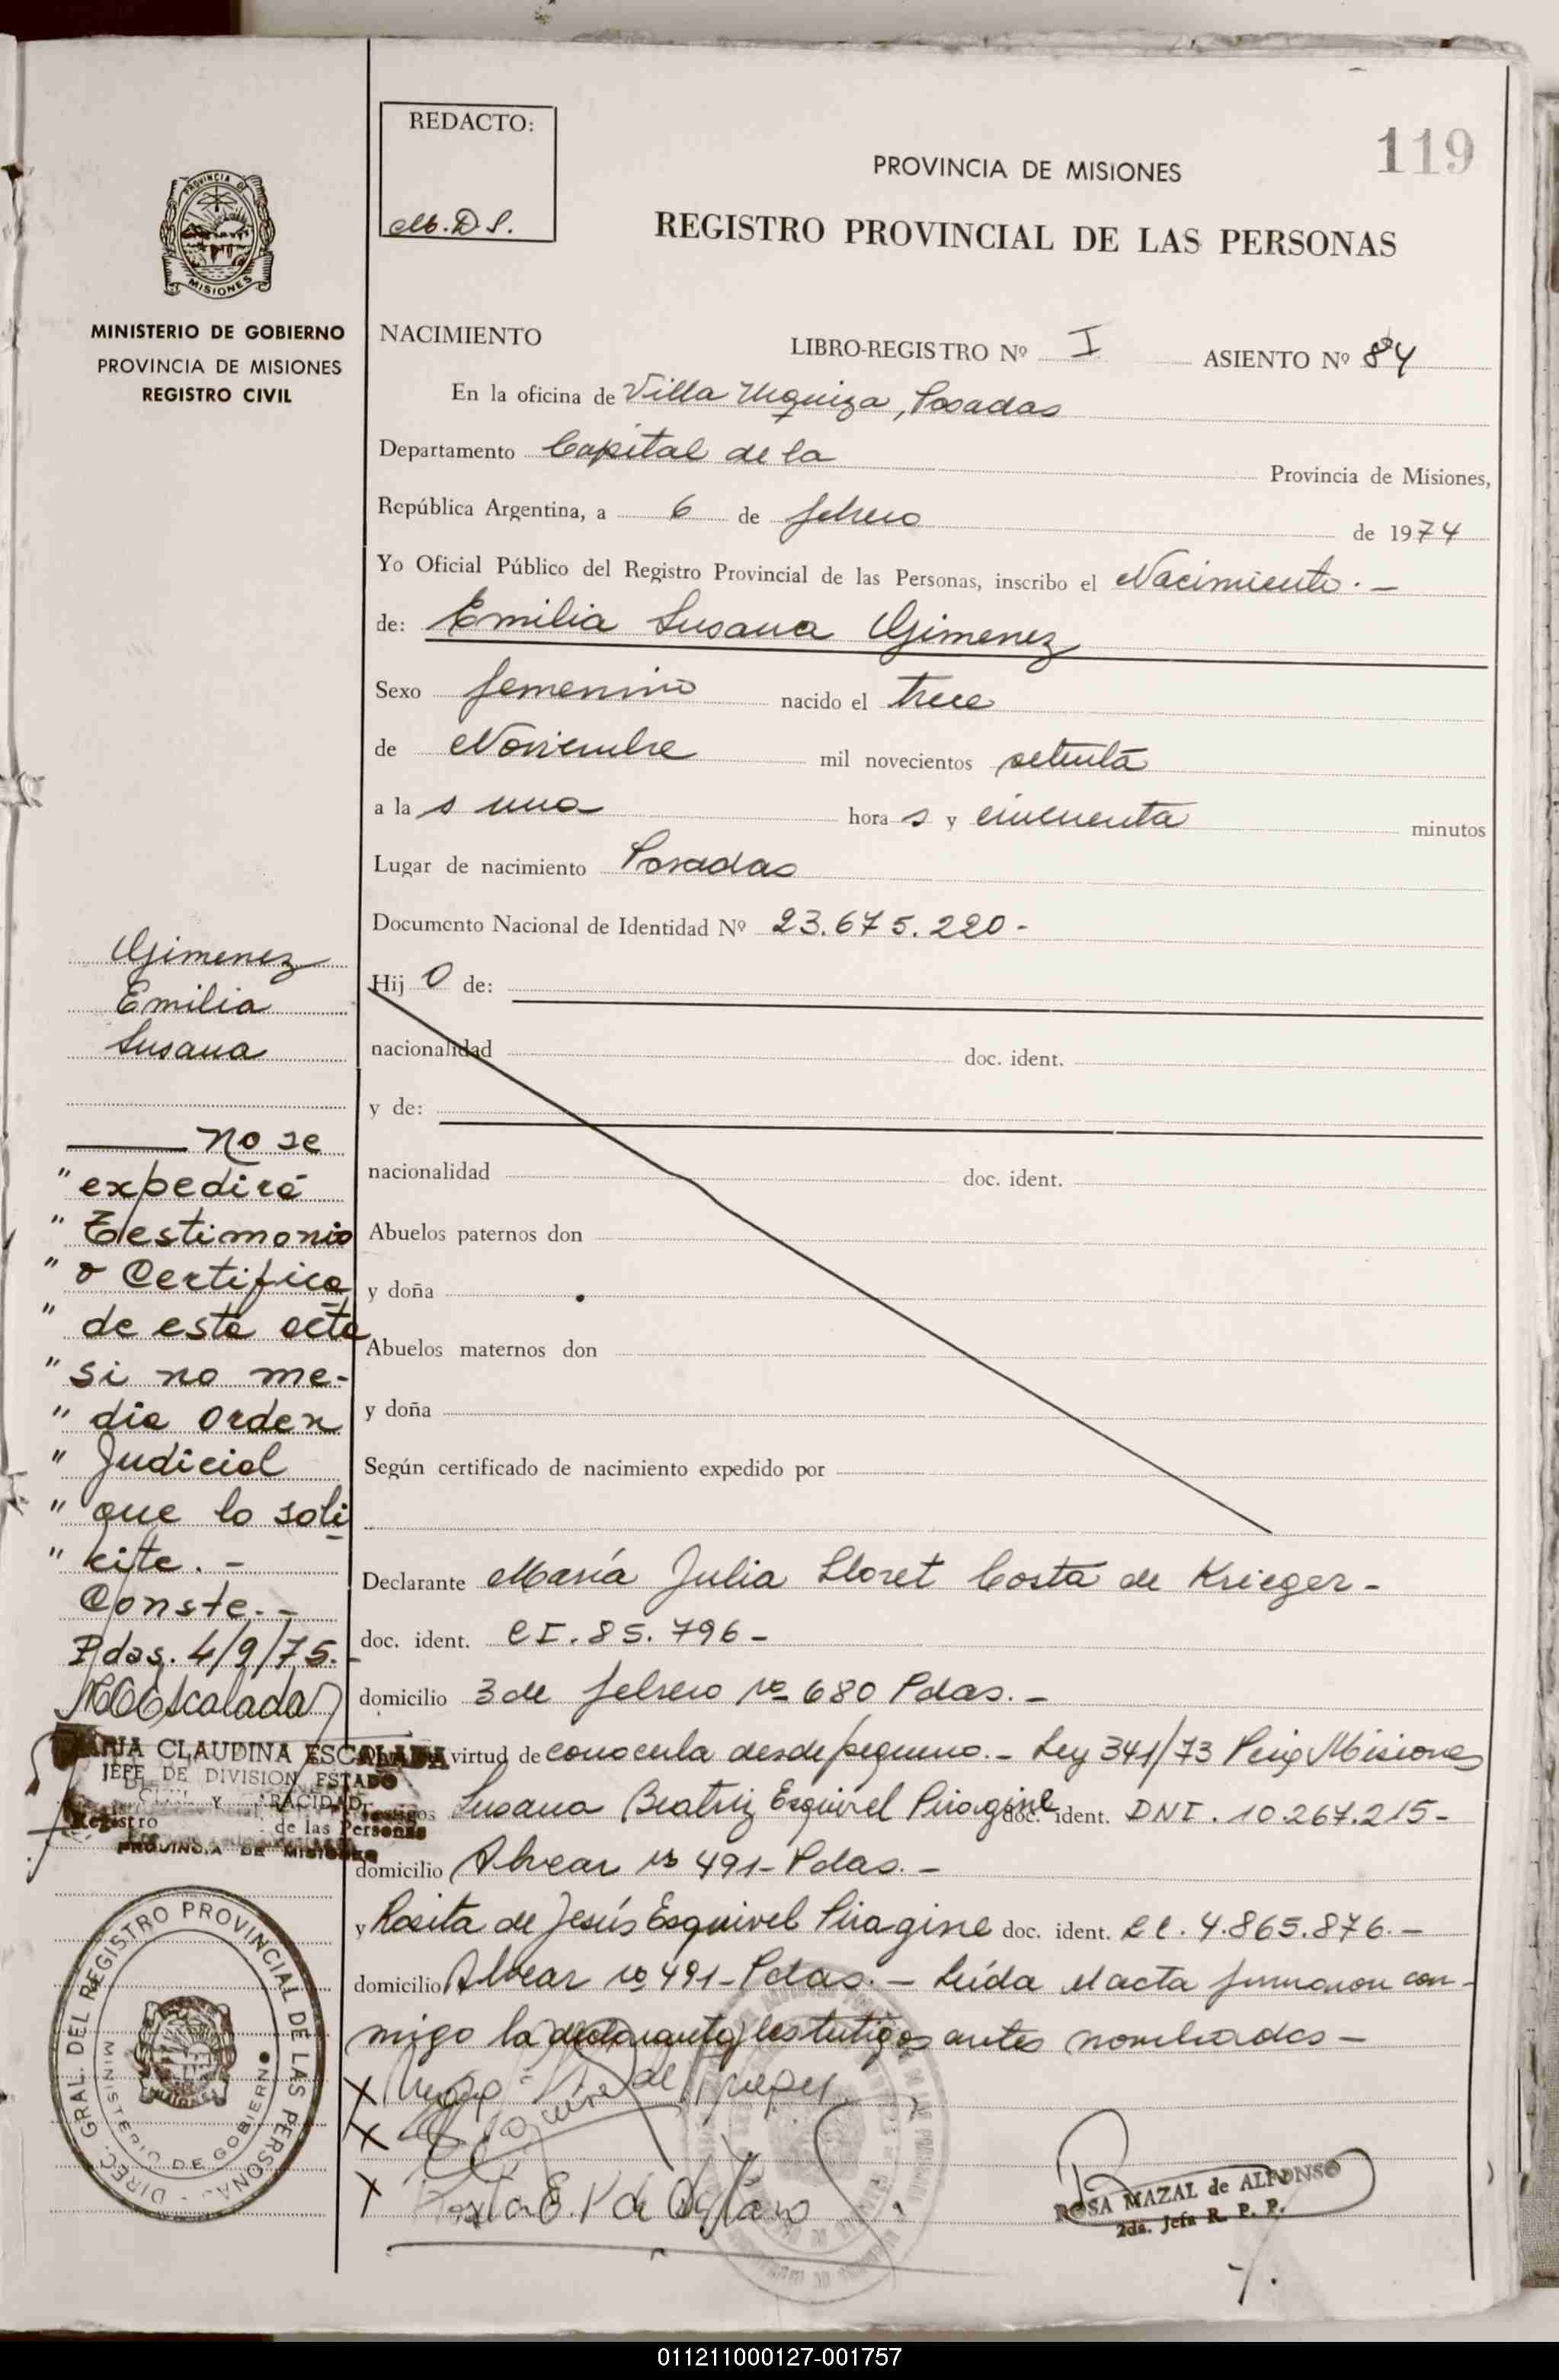 119
REDACTO:
Mb. D S.
PROVINCIA DE MISIONES
REGISTRO PROVINCIAL DE LAS PERSONAS
PROVINCIA DE
MISIONES
MINISTERIO DE GOBIERNO
PROVINCIA DE MISIONES
REGISTRO CIVIL
NACIMIENTO
LIBRO-REGISTRO Nº I ASIENTO Nº 84
En la oficina de Villa Urquiza, Posadas
Departamento Capital de la Provincia de Misiones,
República Argentina, a 6 de febrero de 1974
Yo Oficial Público del Registro Provincial de las Personas, inscribo el Nacimiento. -
de: Emilia Susana Gimenez
Sexo femenino nacido el trece
de Noviembre mil novecientos setenta
a la s una hora s y cincuenta minutos
Lugar de nacimiento Posadas
Documento Nacional de Identidad Nº 23.675.220-
Hij O de:
nacionalidad doc. ident.
y de:
nacionalidad doc. ident.
Abuelos paternos don
y doña
Abuelos maternos don
y doña
Según certificado de nacimiento expedido por
Declarante María Julia Lloret Costa de Krieger-
doc. ident. CI. 85.796-
domicilio 3 de febrero no 680 Pdas. -
virtud de conocerla desde pequeno. - Ley 341/73 Misiones
Susana Beatriz Esquivel Piragine doc. ident. DNI. 10.267.215-
domicilio Alvear no 491- Pdas. -
y Rosita de Jesús Esquivel Piragine doc. ident. LC. 4.865.876. -
domicilio Alvear no 491- Pdas. - Leída el acta firmaron con-
migo la declarante y los testigos antes nombrados -
ROSA MAZAL de ALFONSO
2da. Jefa R. P. P.
Gimenez
Emilia
Susana
No se
" expedirá
" Testimonio
" o Certifica
" de esta acta
" si no me-
" dia Orden
" Judicial
" que lo soli
" cite. -
Conste. -
Pdas. 4/9/75. -
MCEscalada
MARIA CLAUDINA ESCALADA
JEFE DE DIVISION ESTADO
CIVIL Y CAPACIDAD
Registro de las Personas
PROVINCIA DE MISIONES
DIREC. GRAL. DEL REGISTRO PROVINCIAL DE LAS PERSONAS
MINISTERIO DE GOBIERNO
011211000127-001757